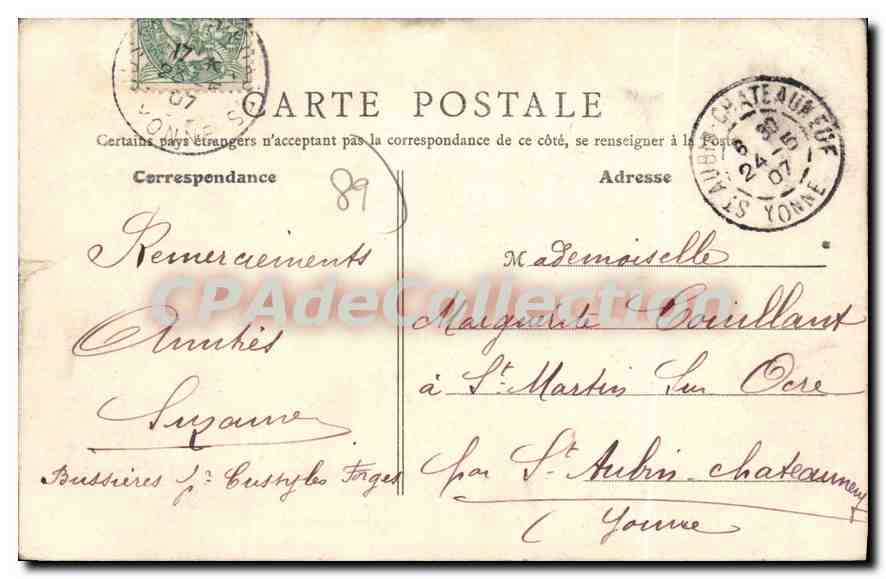 CARTE POSTALE
Certains pays étrangers n'acceptant pas la correspondance de ce côté, se renseigner à la Poste
Correspondance
89
Remerciements
Amitiés
Suzanne
Bussières pr Cussy les Forges
Adresse
Mademoiselle
Marguerite Couillaut
à St Martin Sur Ocre
par St Aubin-chateauneuf
(Yonne
ST AUBIN-CHATEAUNEUF
24 - 5
07
YONNE
17
07
YONNE
CPAdeCollection.com